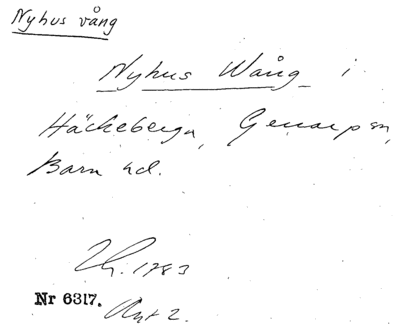 Nyhus vång
Nyhus Wång i
Häckeberga, Genarps sn,
Bara hd.
1783
Nr 6317.